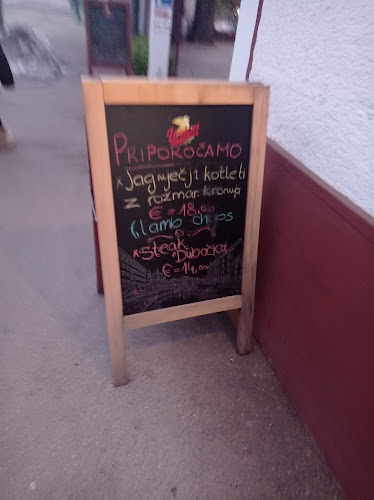 PRIPOROČAMO
x Jagnječji kotleti
z rožmar. krompi
€ = 18,00
(lamb chops
x Steak
"Dubočica"
€ = 14,00